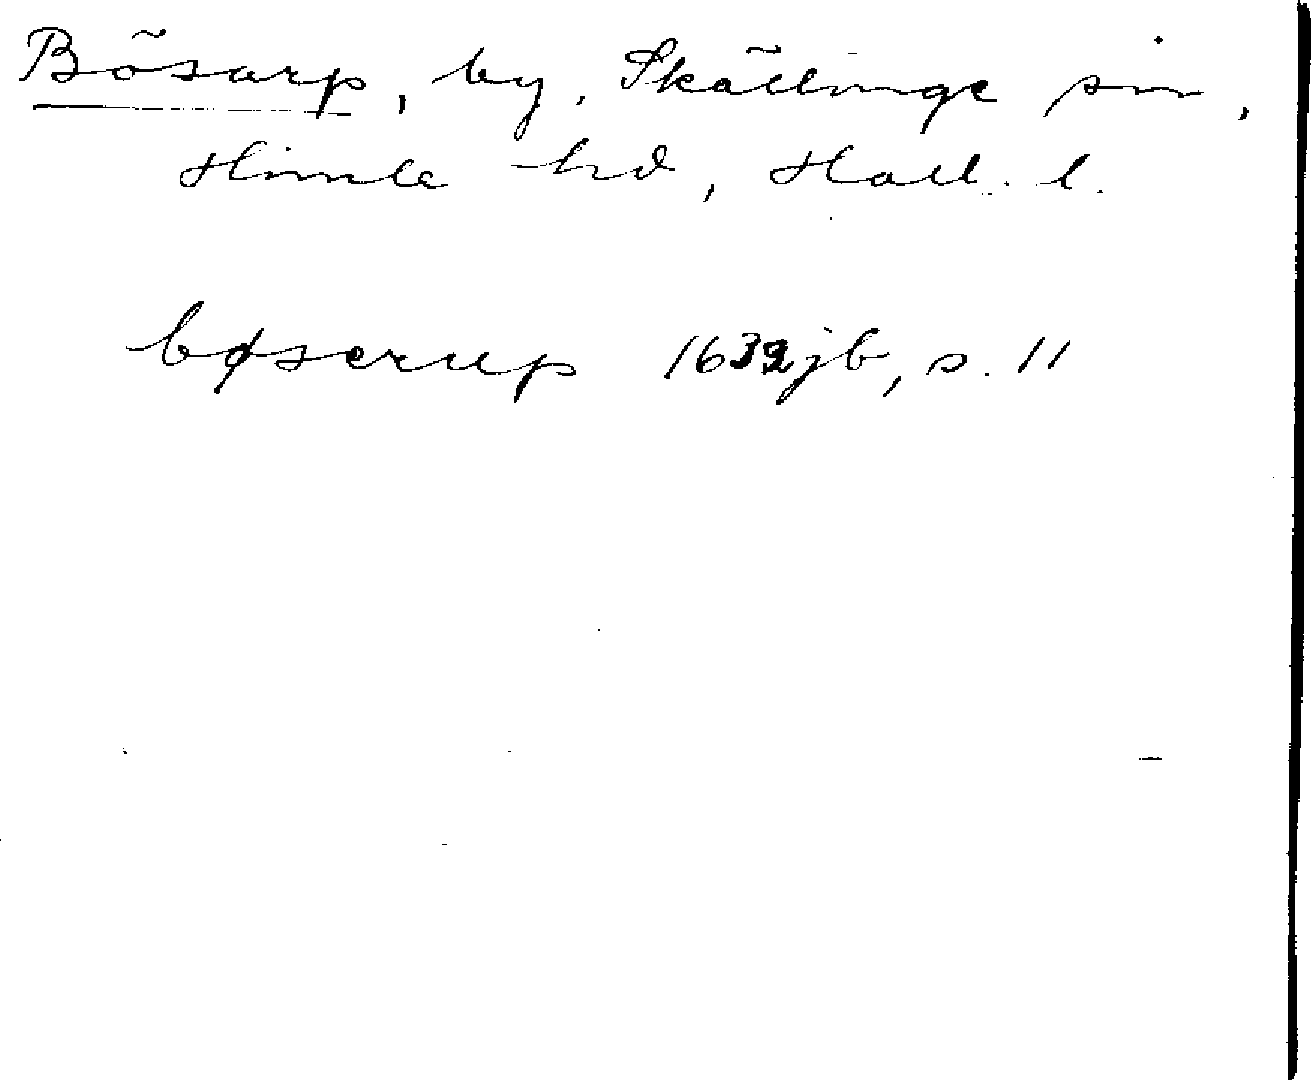 Bösarp, by, Skällinge sn,
Himle hd, Hall. l.
bøserup 1632jb, s. 11